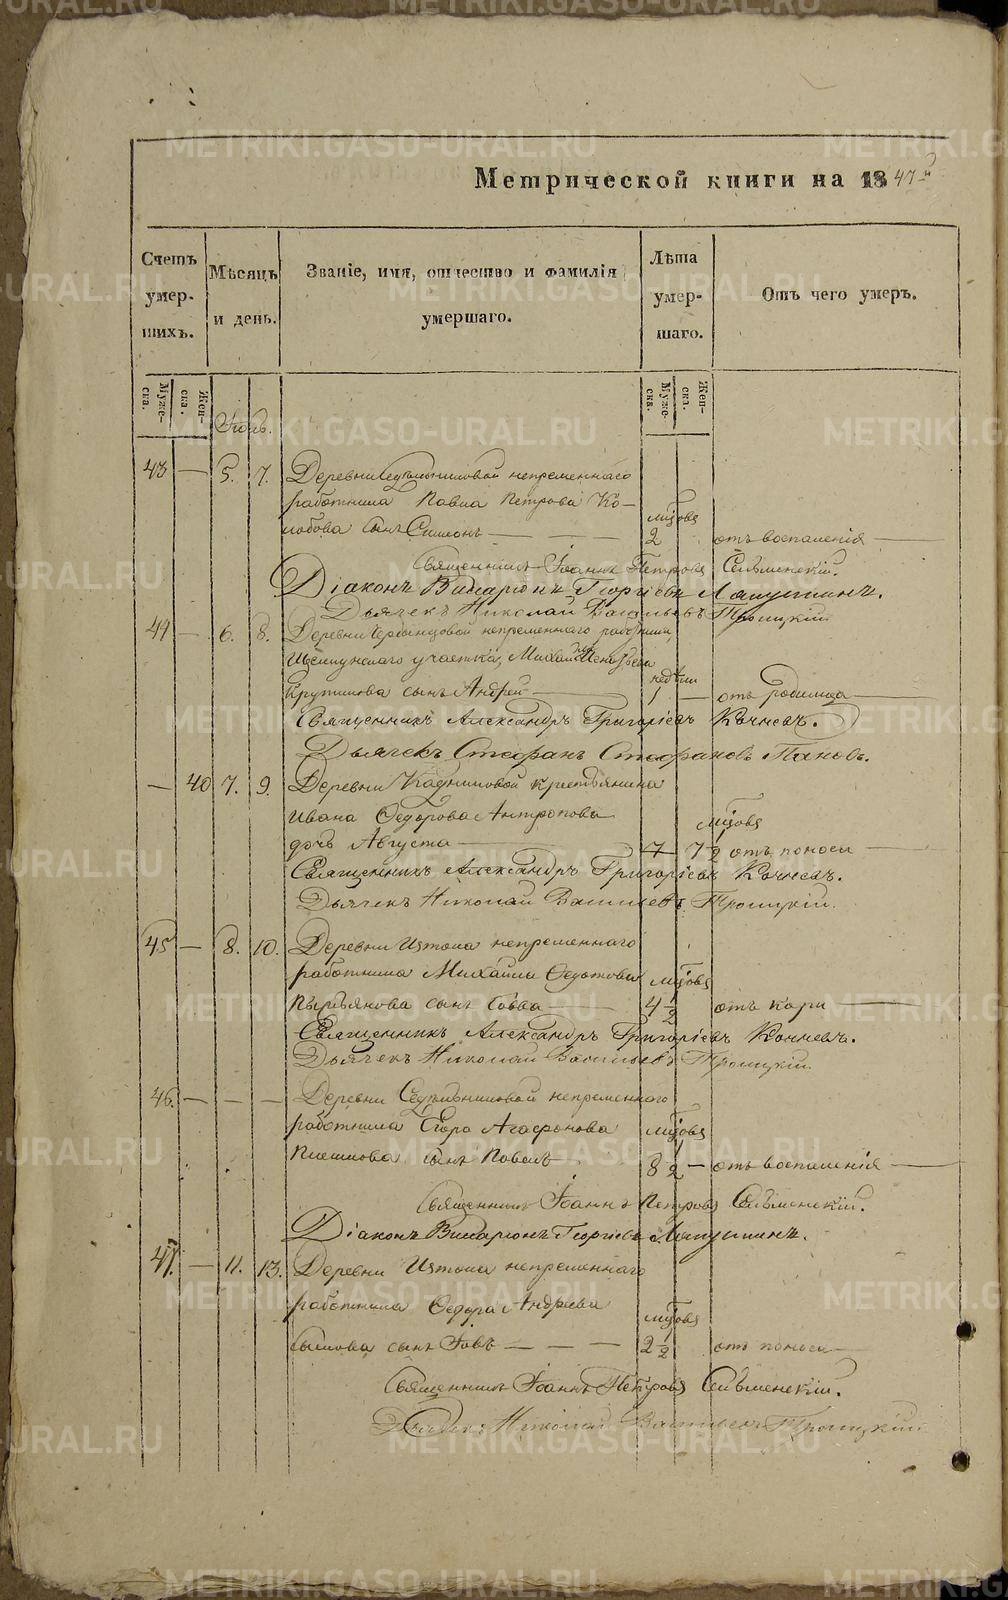 Метрической книги на 1847й
Счетъ умер- шихъ.
Мѣсяцъ и день.
Званіе, имя, отчество и фамилія умершаго.
Лѣта умер- шаго.
Отъ чего умеръ.
Муже- ска.
Жен- ска.
Муже- ска.
Жен- ска.
Іюль.
43 — 5. 7. Деревни непременнаго
работника Павла Петрова Ко-
лобова сынъ Симеонъ — — — мѣсяцовъ 2 отъ воспаленія —
Священникъ Іоаннъ Петровъ Сельменскій.
Діаконъ Виларіонъ Георгіевъ Лапушинъ.
Дьячекъ Николай Васильевъ Троицкій
44 — 6. 8. Деревни непременнаго работника,
участка, Михаила
Крутикова сынъ Андрей — недѣли 1 — отъ родимца —
Священникъ Александръ Григорієвъ Кочневъ.
Дьячекъ Стефанъ Стефановъ Поповъ.
— 40 7. 9. Деревни Кадниковой крестьянина
Ивана Ѳедорова Антропова
дочь Августа — мѣсяцовъ 7 1/2 отъ поноса —
Священникъ Александръ Григорієвъ Кочневъ.
Дьячекъ Николай Васильевъ Троицкій.
45 — 8. 10. Деревни Истока непременнаго
работника Михаила Ѳедотова мѣсяцовъ
Пырьянова сынъ Савва — 4 1/2 отъ кори —
Священникъ Александръ Григорієвъ Кочневъ.
Дьячекъ Николай Васильевъ Троицкій.
46. — — — Деревни непременнаго
работника Егора Агафонова мѣсяцовъ
Плешкова сынъ Павелъ 8 1/2 — отъ воспаленія —
Священникъ Іоаннъ Петровъ Сельменскій.
Діаконъ Виларіонъ Георгіевъ Лапушинъ.
47. — 11. 13. Деревни Истока непременнаго
работника Ѳедора Андреева мѣсяцовъ
сынъ Іовъ — — — 2 1/2 отъ поноса —
Священникъ Іоаннъ Петровъ Сельменскій.
Дьячекъ Николай Васильевъ Троицкій.
METRIKI.GASO-URAL.RU